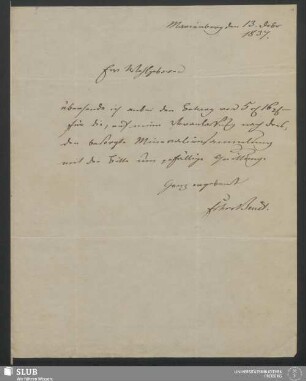 Marienberg den 13. Octbr
1837.
Ew Wohlgeboren
übersende ich anbei den Betrag von 5 16
für die, auf meine Veranlassung nach
besorgte Mineraliensammlung
mit der Bitte um gefällige Quittung.
Ganz ergebenst
SLUB
Wir führen Wissen.
UNIVERSITÄTSBIBLIOTHEK
FREIBERG